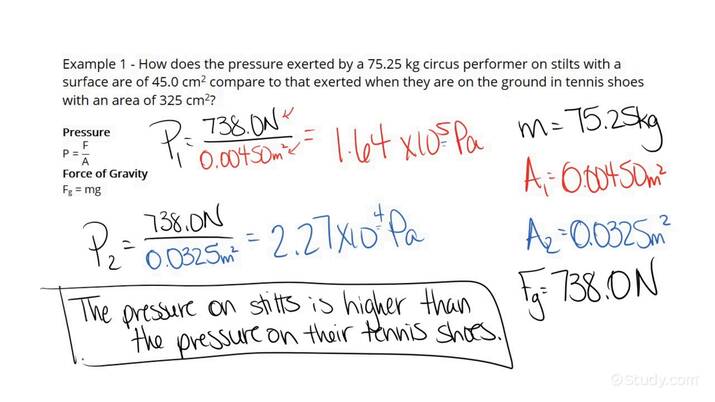 Example 1 - How does the pressure exerted by a 75.25 kg circus performer on stilts with a
surface are of 45.0 cm² compare to that exerted when they are on the ground in tennis shoes
with an area of 325 cm²?
Pressure
P = F/A
Force of Gravity
Fg = mg
P₁ = 738.0N / 0.00450m² = 1.64 x10⁵ Pa
P₂ = 738.0N / 0.0325m² = 2.27x10⁴ Pa
m = 75.25kg
A₁ = 0.00450m²
A₂ = 0.0325m²
Fg = 738.0N
The pressure on stilts is higher than
the pressure on their tennis shoes.
Study.com